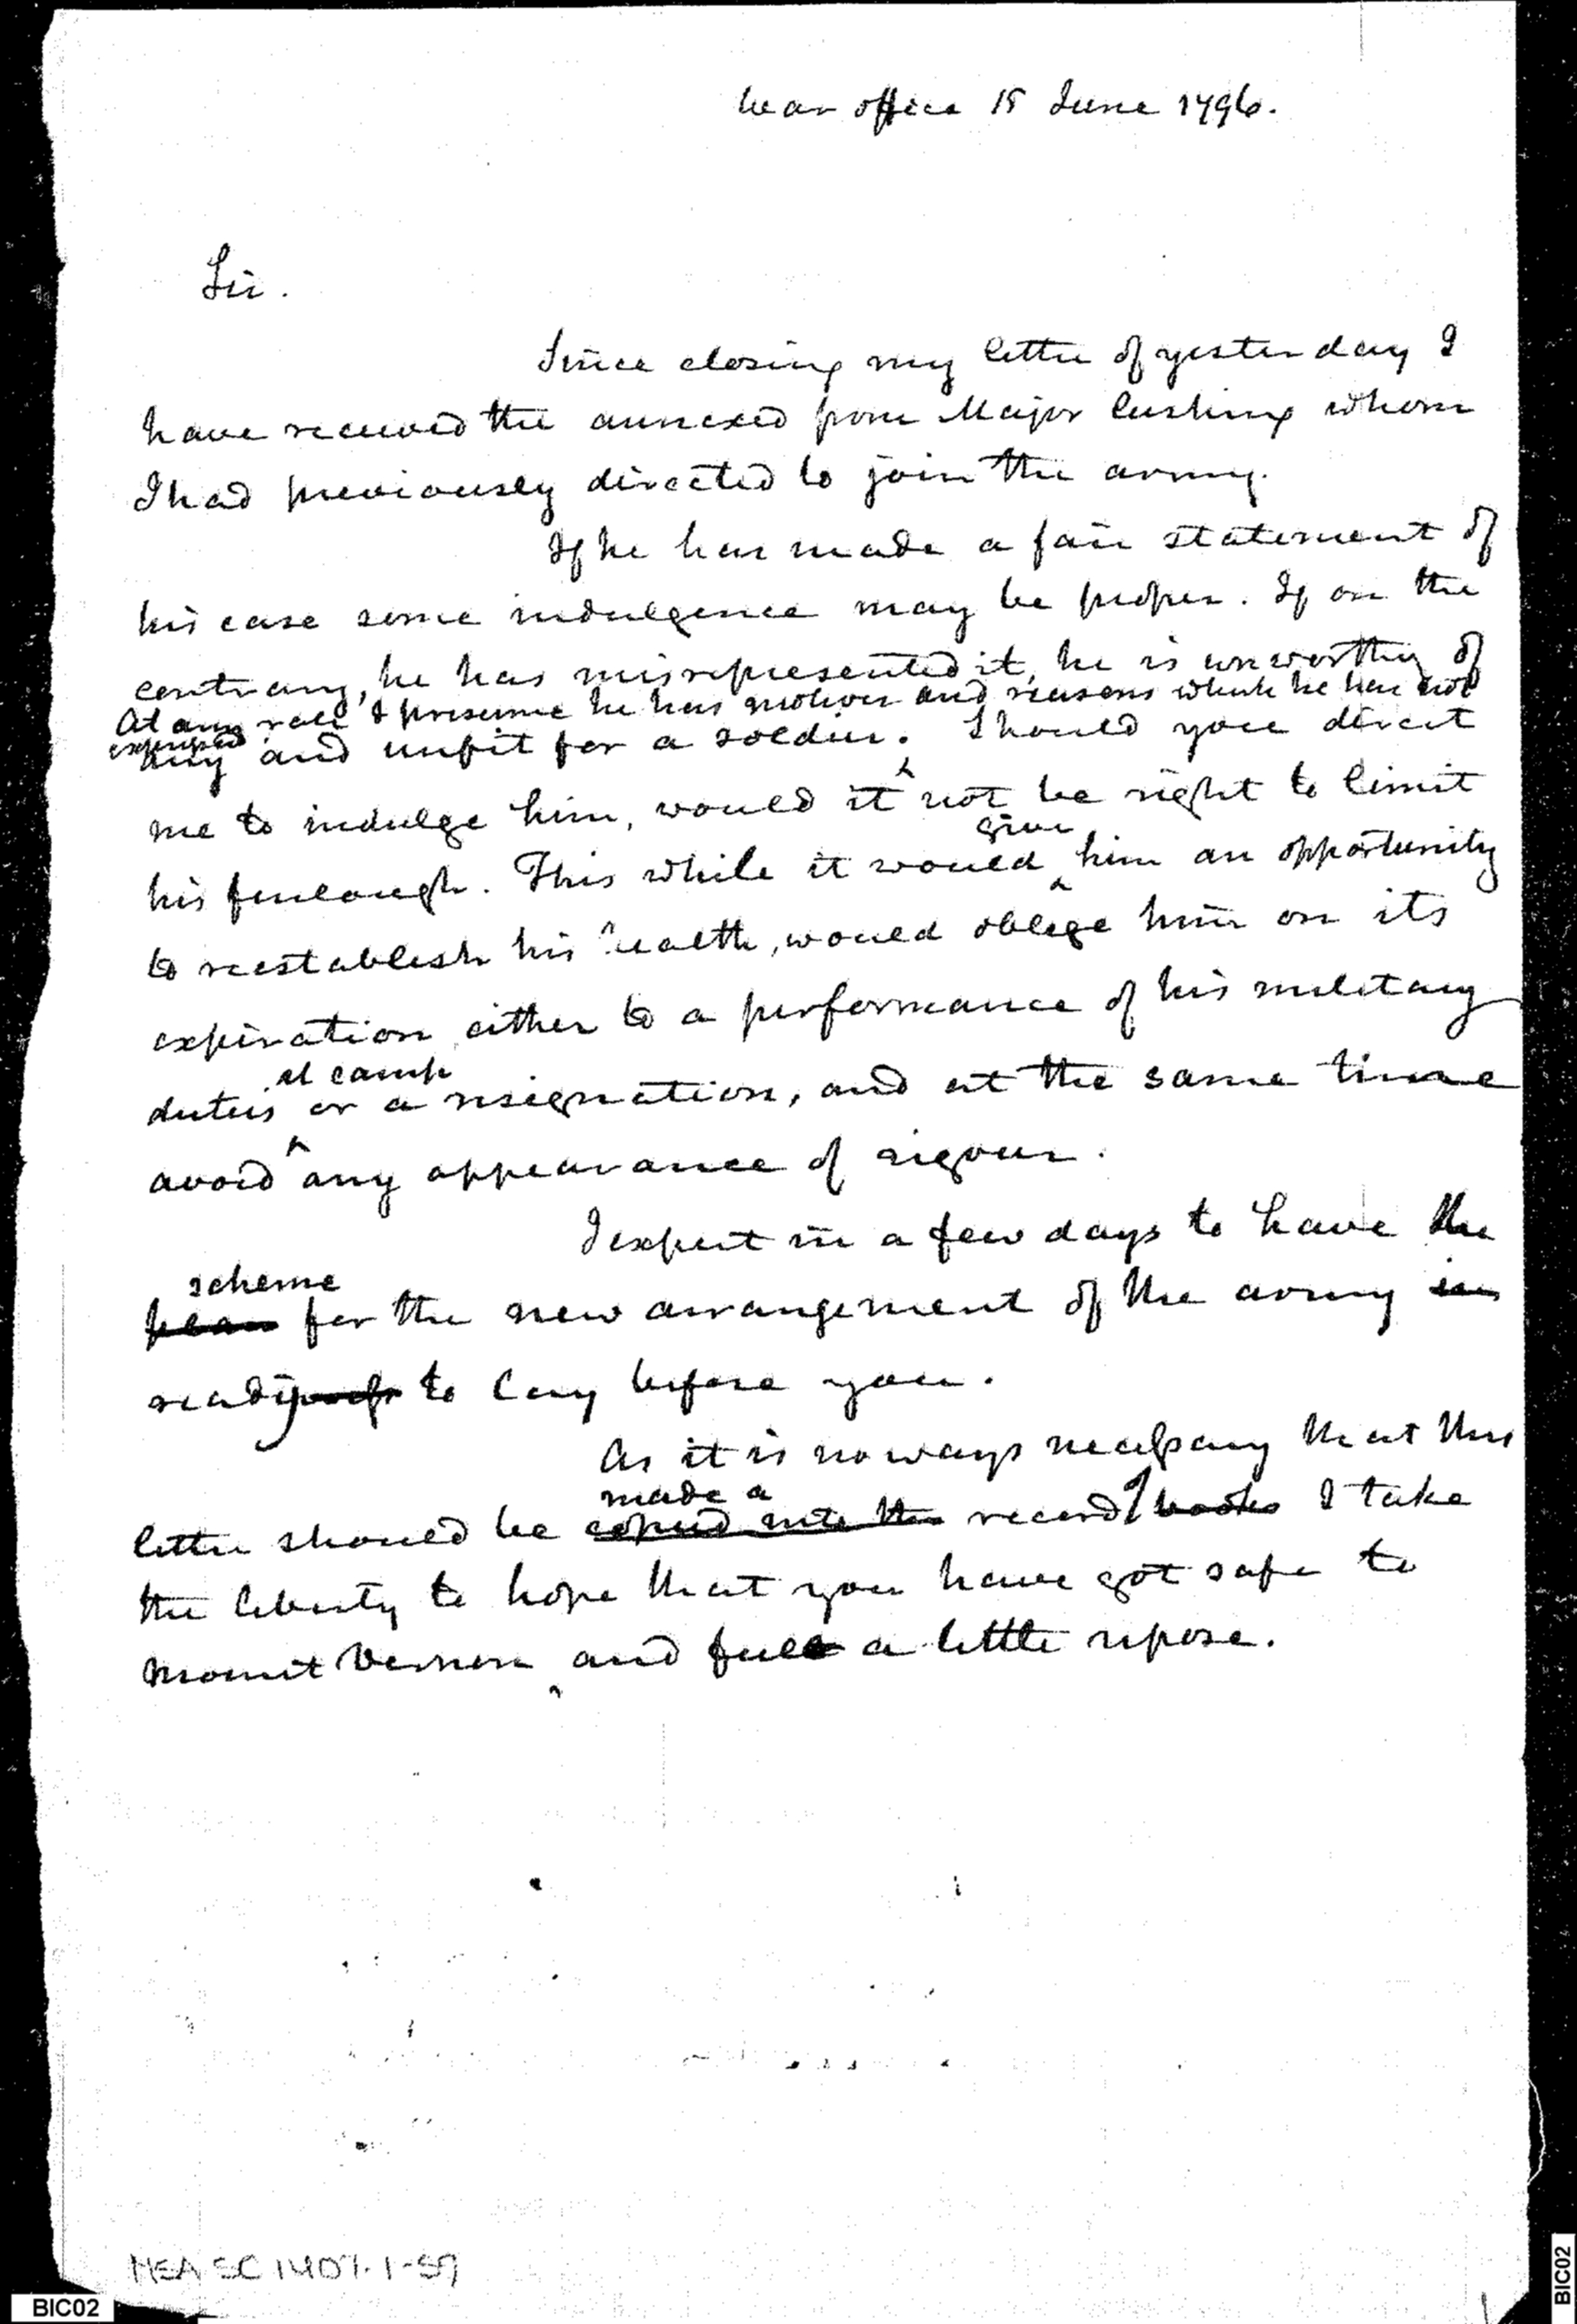 War office 18 June 1796.
Sir.
Since closing my letter of yesterday I
have received the annexed from Major Cushing whom
I had previously directed to join the army.
If he has made a fair statement of
his case some indulgence may be proper. If on the
contrary, he has misrepresented it, he is unworthy of
At any rate I presume he has motives and reasons which he has not
expressed
any and unfit for a soldier. Should you direct
me to indulge him, would it not be right to limit
give
his furlough. This while it would him an opportunity
to reestablish his health, would oblige him on its
expiration either to a performance of his military
at camp
duties or a resignation, and at the same time
avoid any appearance of rigour.
I expect in a few days to have the
scheme
plan for the new arrangement of the army in
ready to lay before you.
As it is no ways necessary that this
made a
letter should be copied into the record books I take
the liberty to hope that you have got safe to
Mount Vernon and feel a little repose.
HSA SC 1407.1-59
BIC02
BIC02